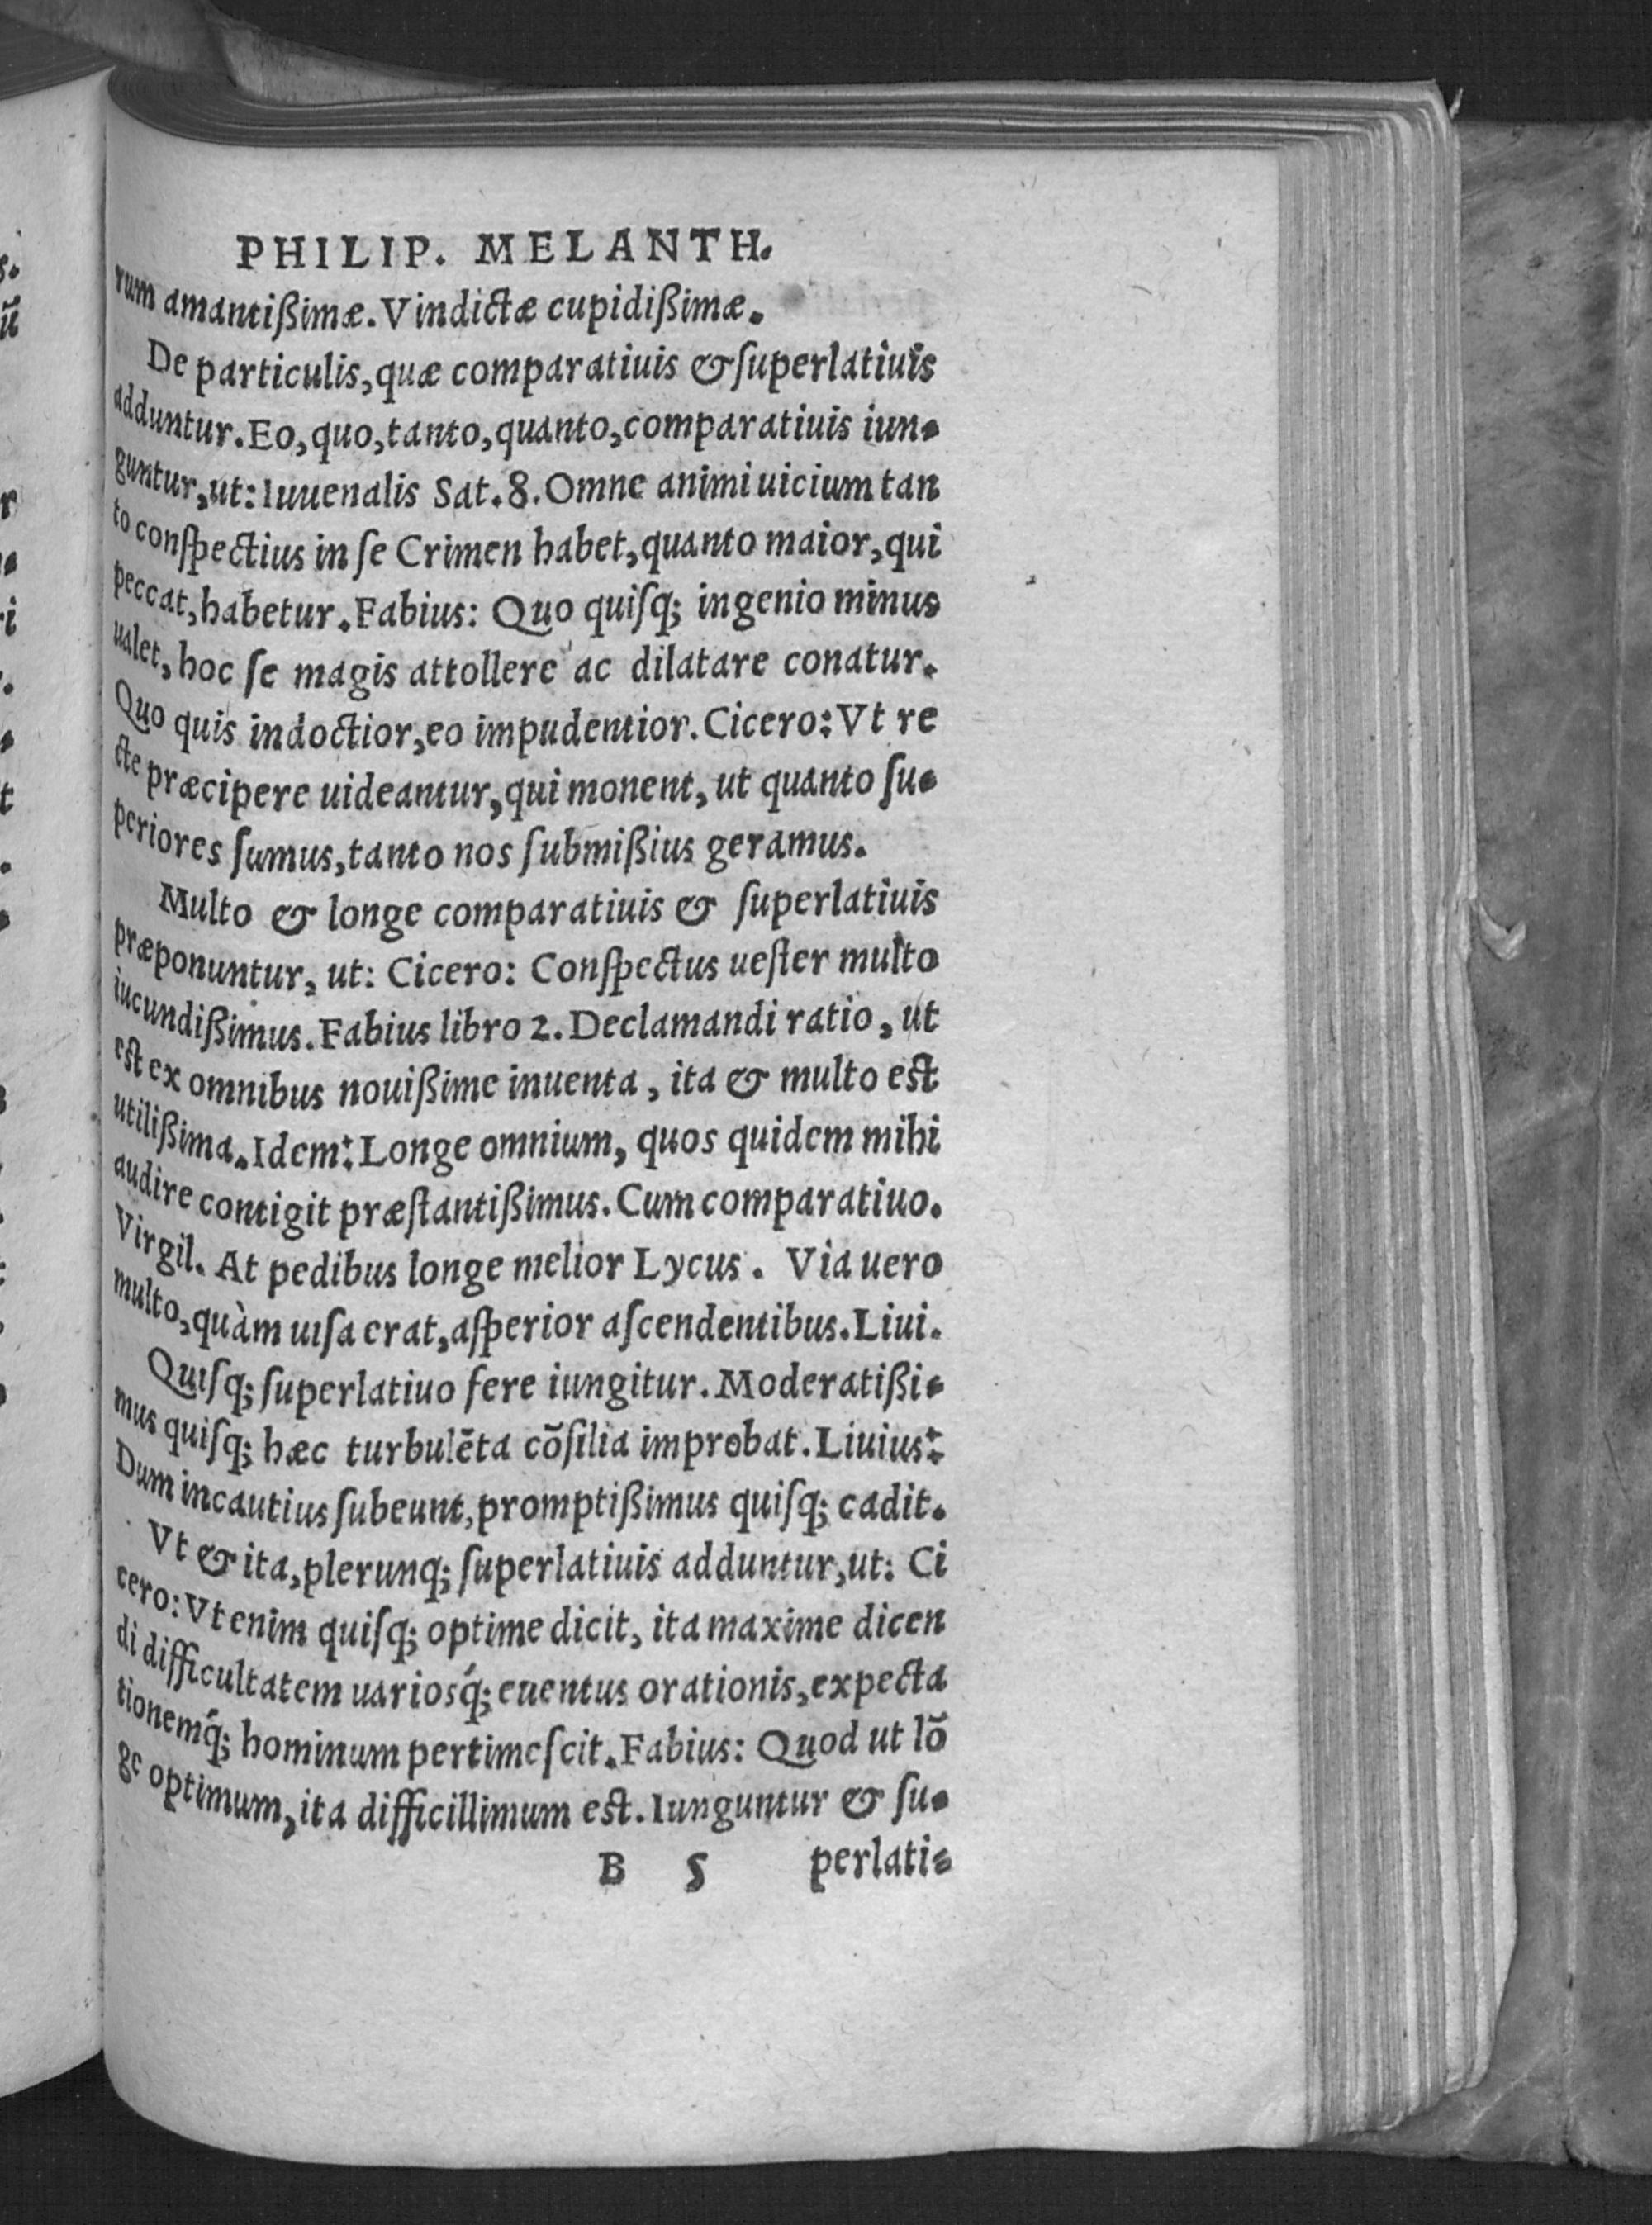 PHILIP. MELANTH.
rum amantißimæ. Vindictæ cupidißimæ.
De particulis, quæ comparatiuis & ſuperlatiuis
adduntur. Eo, quo, tanto, quanto, comparatiuis iun-
guntur, ut: Iuuenalis Sat. 8. Omne animi uicium tan
to conſpectius in ſe Crimen habet, quanto maior, qui
peccat, habetur. Fabius: Quo quiſq; ingenio minus
ualet, hoc ſe magis attollere ac dilatare conatur.
Quo quis indoctior, eo impudentior. Cicero: Vt re
cte præcipere uideantur, qui monent, ut quanto ſu-
periores ſumus, tanto nos ſubmißius geramus.
Multo & longe comparatiuis & ſuperlatiuis
præponuntur, ut: Cicero: Conſpectus ueſter multo
iucundißimus. Fabius libro 2. Declamandi ratio, ut
est ex omnibus nouißime inuenta, ita & multo est
utilißima. Idem: Longe omnium, quos quidem mihi
audire contigit præſtantißimus. Cum comparatiuo.
Virgil. At pedibus longe melior Lycus. Via uero
multo, quàm uiſa erat, aſperior aſcendentibus. Liui.
Quiſq; ſuperlatiuo fere iungitur. Moderatißi-
mus quiſq; hæc turbulēta cōſilia improbat. Liuius:
Dum incautius ſubeunt, promptißimus quiſq; cadit.
Vt & ita, plerunq; ſuperlatiuis adduntur, ut: Ci
cero: Vt enim quiſq; optime dicit, ita maxime dicen
di difficultatem uariosq́; euentus orationis, expecta
tionemq́; hominum pertimeſcit. Fabius: Quod ut lō
ge optimum, ita difficillimum est. Iunguntur & ſu-
B 5 perlati-